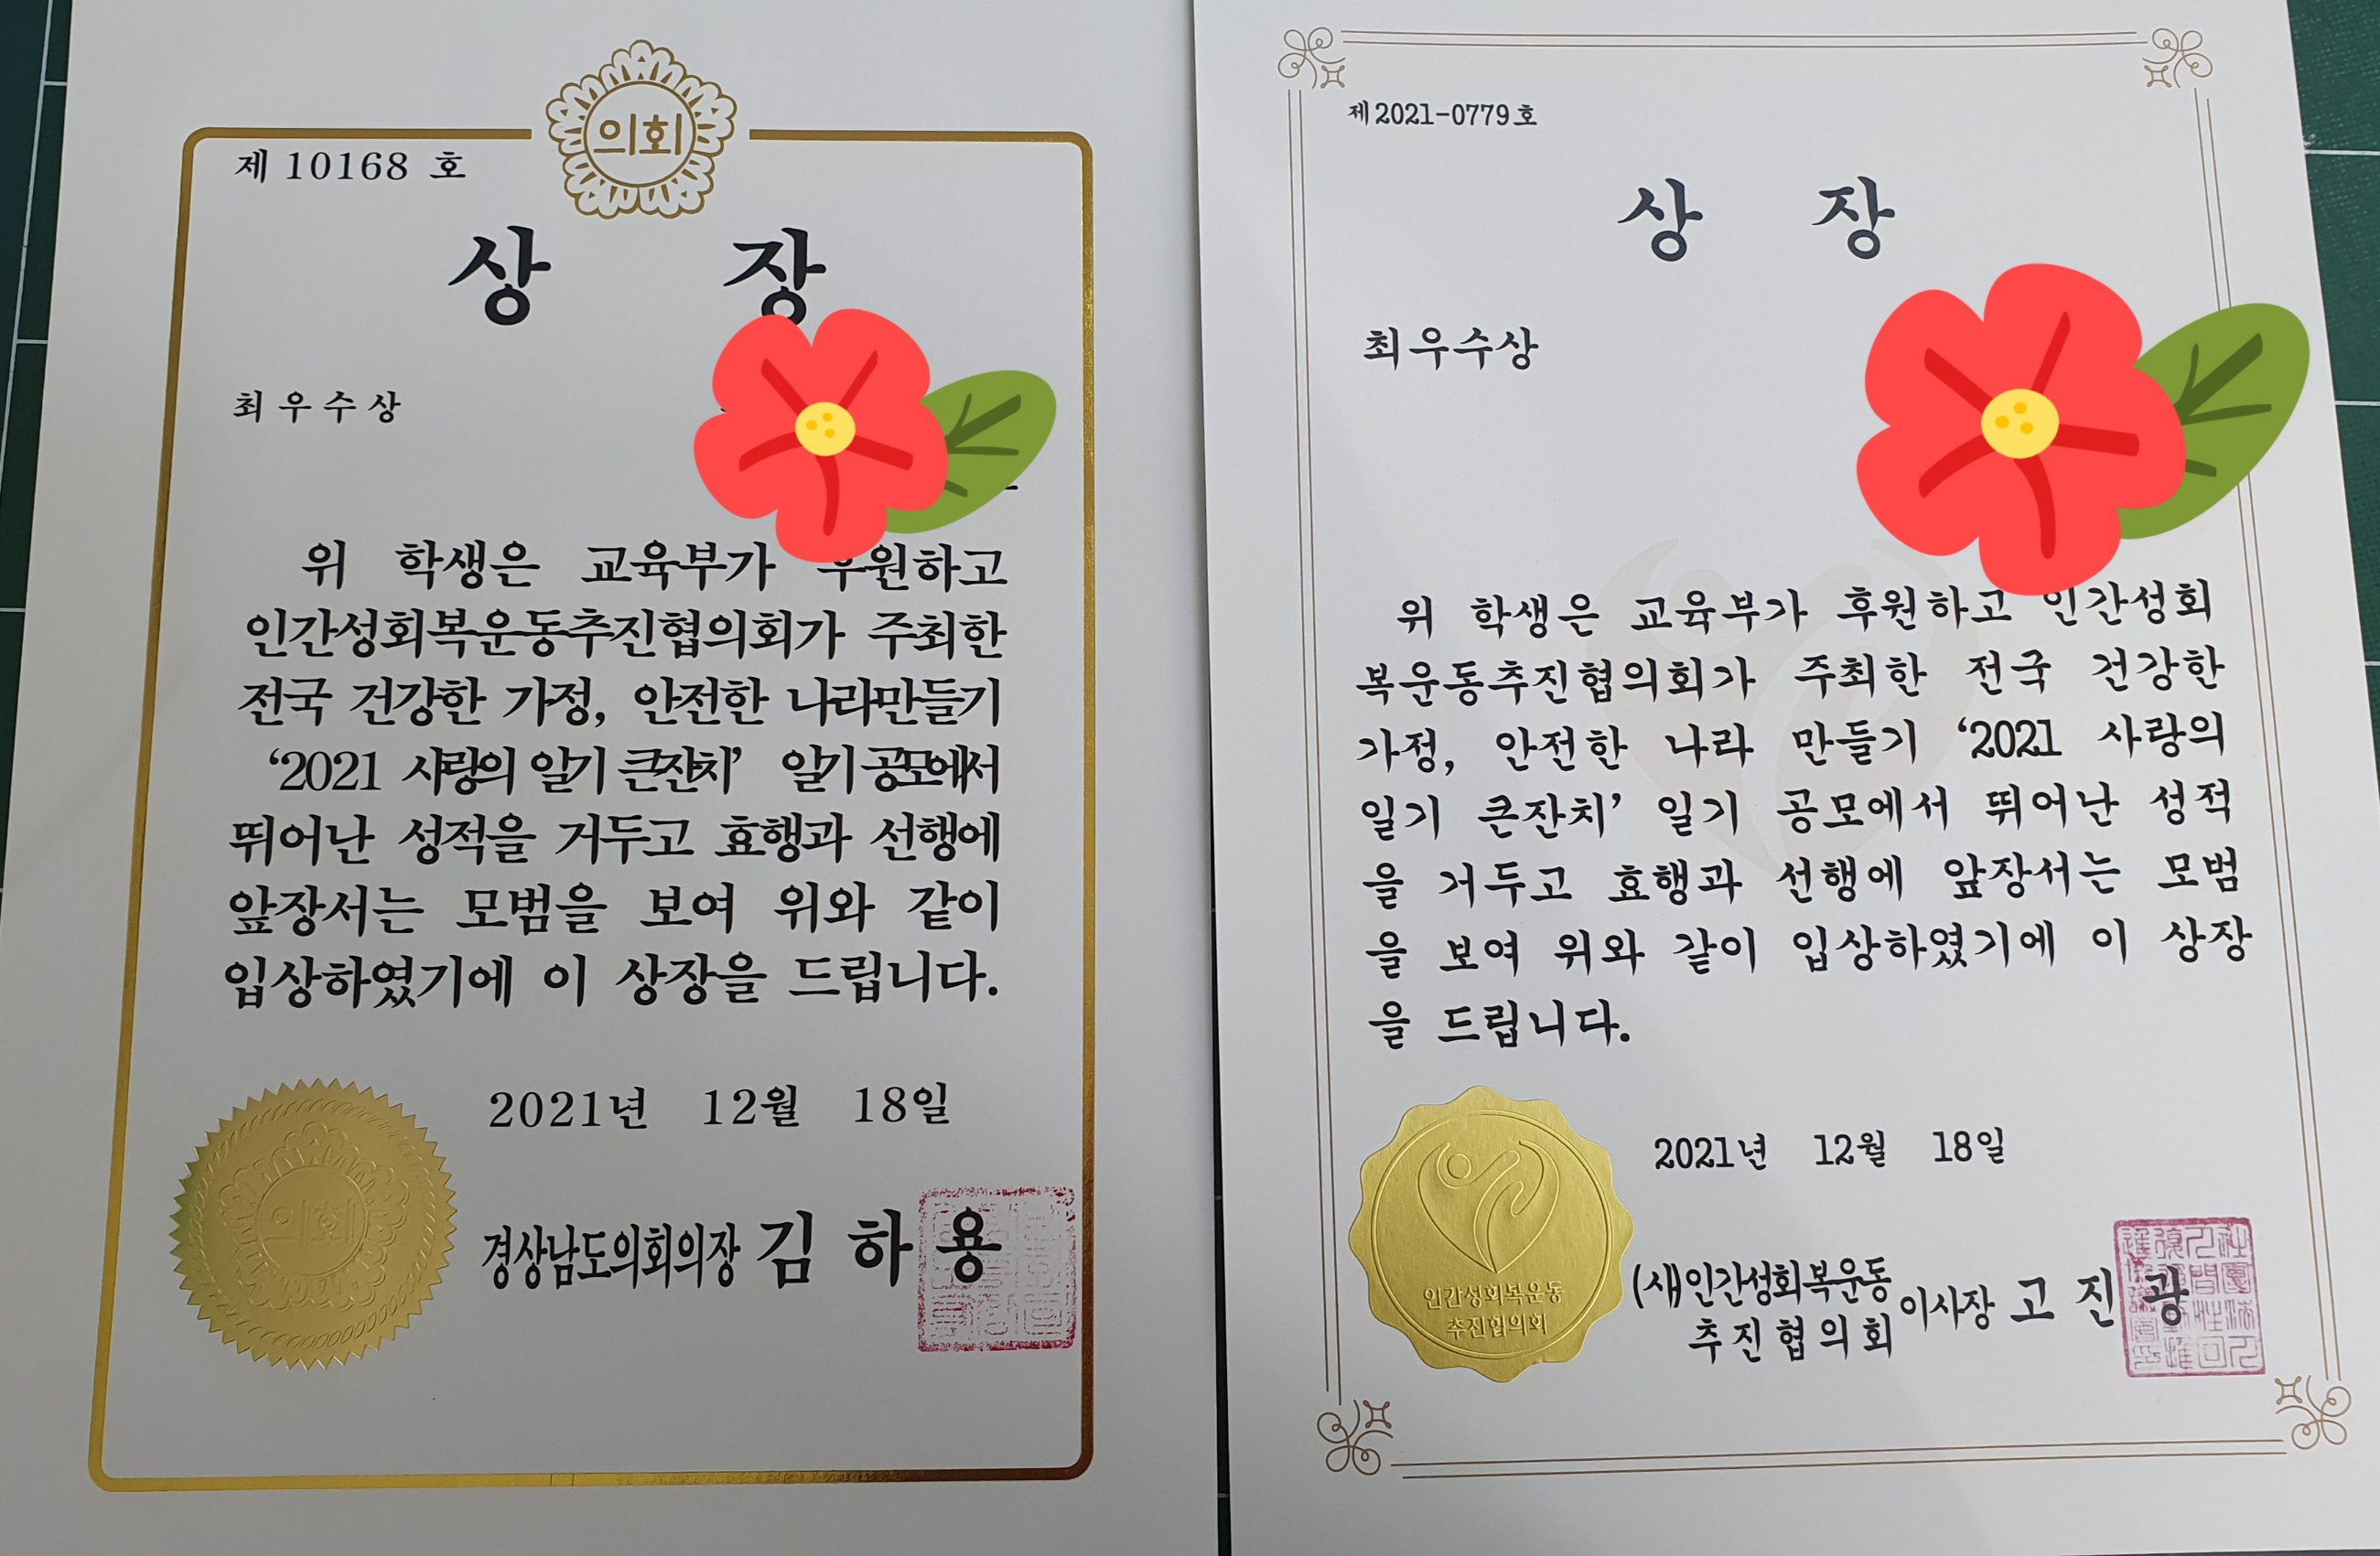 의회
제 10168 호
상 장
최우수상
위 학생은 교육부가 후원하고
인간성회복운동추진협의회가 주최한
전국 건강한 가정, 안전한 나라만들기
‘2021 사랑의 일기 큰잔치’ 일기 공모에서
뛰어난 성적을 거두고 효행과 선행에
앞장서는 모범을 보여 위와 같이
입상하였기에 이 상장을 드립니다.
2021년 12월 18일
의회
경상남도의회의장 김 하 용
제 2021-0779 호
상 장
최우수상
위 학생은 교육부가 후원하고 인간성회
복운동추진협의회가 주최한 전국 건강한
가정, 안전한 나라 만들기 ‘2021 사랑의
일기 큰잔치’ 일기 공모에서 뛰어난 성적
을 거두고 효행과 선행에 앞장서는 모범
을 보여 위와 같이 입상하였기에 이 상장
을 드립니다.
2021년 12월 18일
인간성회복운동
추진협의회
(사)인간성회복운동
추진협의회 이사장 고 진 광